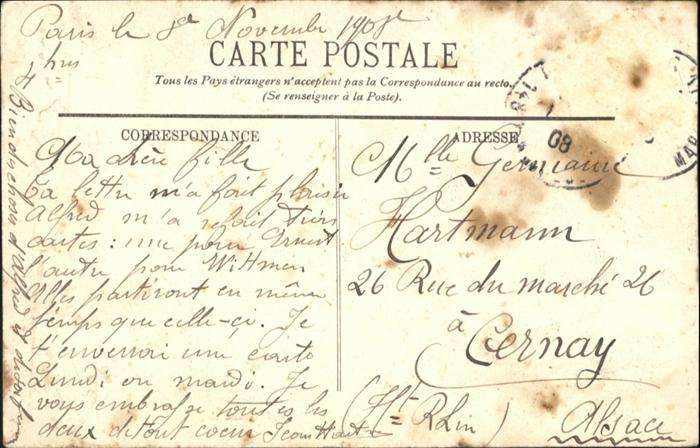 Paris le 8 Novembre 1908
4 hrs
CARTE POSTALE
Tous les Pays étrangers n'acceptent pas la Correspondance au recto.
(Se renseigner à la Poste).
CORRESPONDANCE
Ma chère fille
Ta lettre m'a fait plaisir
Alfred m'a refait trois
cartes : une pour Ernest
l'autre pour Wittmer
Elles partiront en même
temps que celle-ci. Je
t'enverrai une carte
Lundi ou mardi. Je
vous embrasse toutes les
deux de tout coeur Jean Hart
Bien des choses d'Alfred
ADRESSE
Mlle Germaine
Hartmann
26 Rue du marché 26
à
Cernay
(Ht Rhin)
Alsace
08